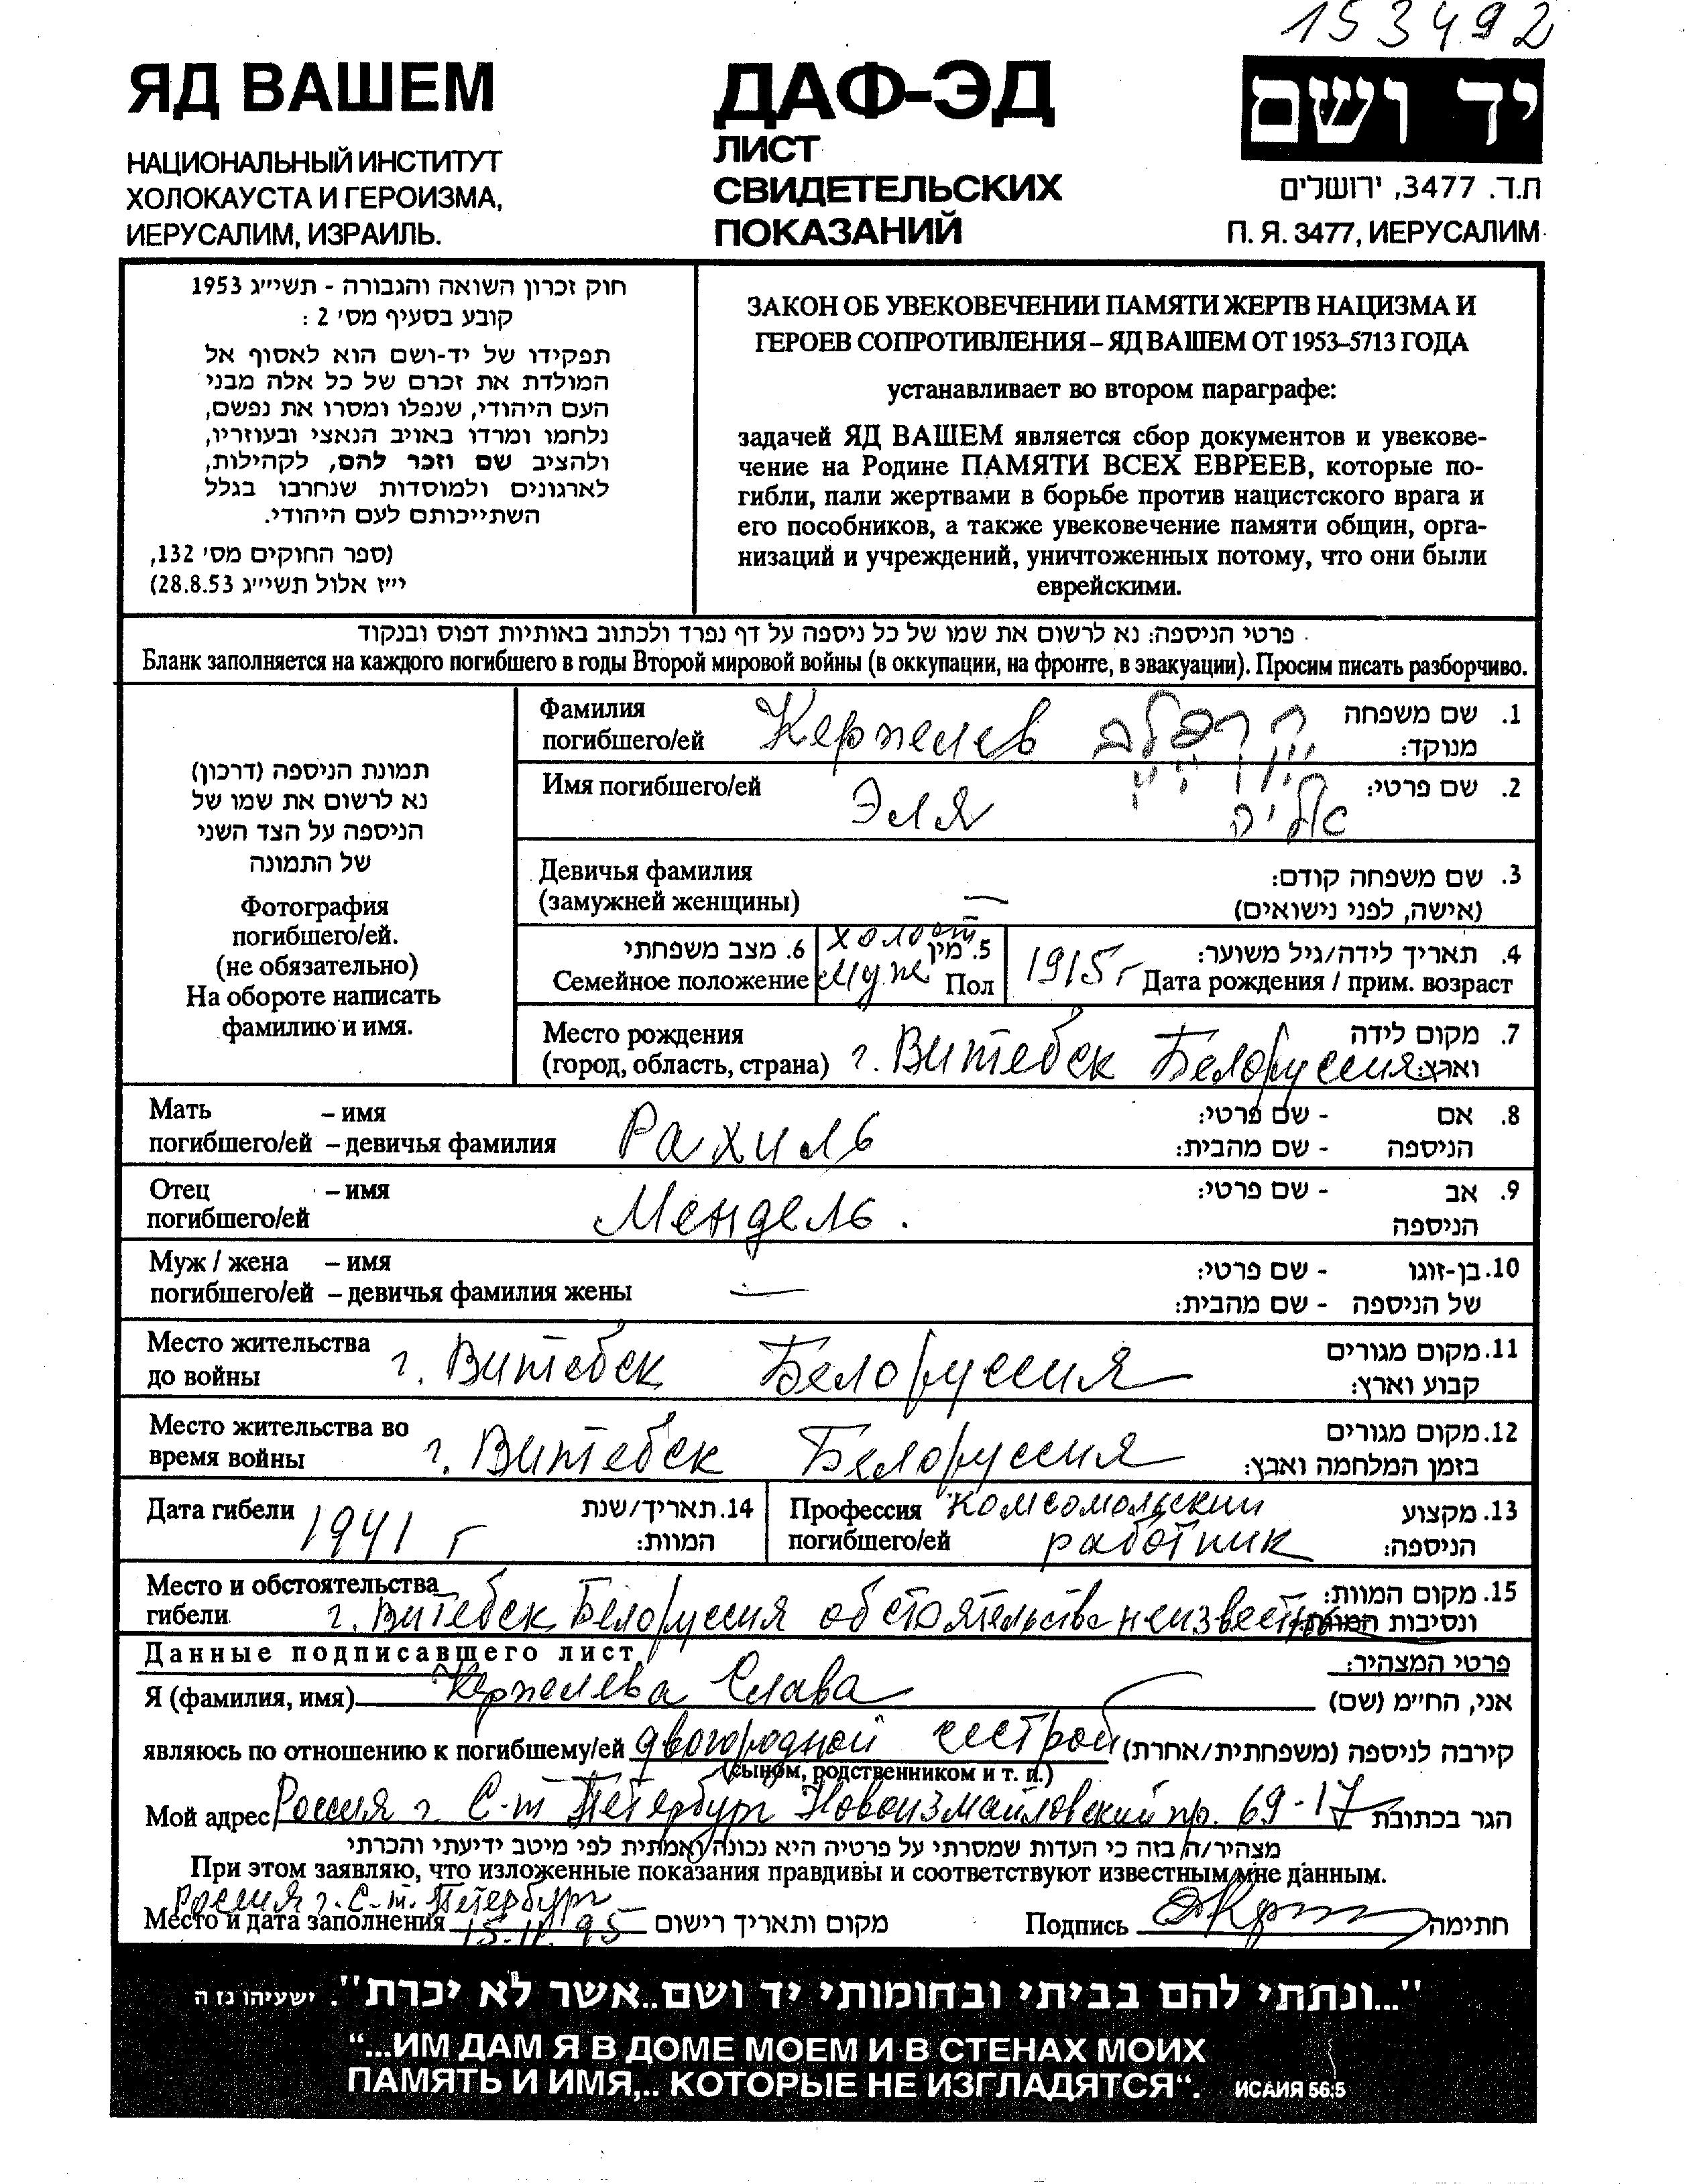 153492
ЯД ВАШЕМ
НАЦИОНАЛЬНЫЙ ИНСТИТУТ
ХОЛОКАУСТА И ГЕРОИЗМА,
ИЕРУСАЛИМ, ИЗРАИЛЬ.
ДАФ-ЭД
ЛИСТ
СВИДЕТЕЛЬСКИХ
ПОКАЗАНИЙ
יד ושם
ת.ד. 3477, ירושלים
П. Я. 3477, ИЕРУСАЛИМ
חוק זכרון השואה והגבורה - תשי״ג 1953
קובע בסעיף מס׳ 2 :
תפקידו של יד-ושם הוא לאסוף אל
המולדת את זכרם של כל אלה מבני
העם היהודי, שנפלו ומסרו את נפשם,
נלחמו ומרדו באויב הנאצי ובעוזריו,
ולהציב שם וזכר להם, לקהילות,
לארגונים ולמוסדות שנחרבו בגלל
השתייכותם לעם היהודי.
(ספר החוקים מס׳ 132,
י״ז אלול תשי״ג 28.8.53)
ЗАКОН ОБ УВЕКОВЕЧЕНИИ ПАМЯТИ ЖЕРТВ НАЦИЗМА И
ГЕРОЕВ СОПРОТИВЛЕНИЯ – ЯД ВАШЕМ ОТ 1953–5713 ГОДА
устанавливает во втором параграфе:
задачей ЯД ВАШЕМ является сбор документов и увекове-
чение на Родине ПАМЯТИ ВСЕХ ЕВРЕЕВ, которые по-
гибли, пали жертвами в борьбе против нацистского врага и
его пособников, а также увековечение памяти общин, орга-
низаций и учреждений, уничтоженных потому, что они были
еврейскими.
פרטי הניספה: נא לרשום את שמו של כל ניספה על דף נפרד ולכתוב באותיות דפוס ובנקוד
Бланк заполняется на каждого погибшего в годы Второй мировой войны (в оккупации, на фронте, в эвакуации). Просим писать разборчиво.
תמונת הניספה (דרכון)
נא לרשום את שמו של
הניספה על הצד השני
של התמונה
Фотография
погибшего/ей.
(не обязательно)
На обороте написать
фамилию и имя.
Фамилия
погибшего/ей Керпелев קרפלב
1. שם משפחה
מנוקד:
Имя погибшего/ей Эля אליה
2. שם פרטי:
Девичья фамилия
(замужней женщины) —
3. שם משפחה קודם:
(אישה, לפני נישואים)
6. מצב משפחתי
Семейное положение
холост
муж
5. מין
Пол
1915 г
4. תאריך לידה/גיל משוער:
Дата рождения / прим. возраст
Место рождения
(город, область, страна) г. Витебск Белоруссия
7. מקום לידה
וארץ:
Мать – имя
погибшего/ей – девичья фамилия
Рахиль
8. אם - שם פרטי:
הניספה - שם מהבית:
Отец – имя
погибшего/ей
Мендель.
9. אב - שם פרטי:
הניספה
Муж / жена – имя
погибшего/ей – девичья фамилия жены —
10. בן-זוגו - שם פרטי:
של הניספה - שם מהבית:
Место жительства
до войны г. Витебск Белоруссия
11. מקום מגורים
קבוע וארץ:
Место жительства во
время войны г. Витебск Белоруссия
12. מקום מגורים
בזמן המלחמה וארץ:
Дата гибели 1941 г
14. תאריך/שנת
המוות:
Профессия комсомольский
погибшего/ей работник
13. מקצוע
הניספה:
Место и обстоятельства
гибели г. Витебск Белоруссия обстоятельства неизвестны
15. מקום המוות:
ונסיבות המוות:
Данные подписавшего лист
פרטי המצהיר:
Я (фамилия, имя) Керпелева Слава אני, הח״מ (שם)
являюсь по отношению к погибшему/ей двоюродной сестрой קירבה לניספה (משפחתית/אחרת)
(сыном, родственником и т. п.)
Мой адрес Россия г. С-т Петербург Новоизмайловский пр. 69-17 הגר בכתובת
מצהיר/ה בזה כי העדות שמסרתי על פרטיה היא נכונה ואמתית לפי מיטב ידיעתי והכרתי
При этом заявляю, что изложенные показания правдивы и соответствуют известным мне данным.
Россия г. С-т. Петербург
Место и дата заполнения 15.11.95 מקום ותאריך רישום Подпись חתימה
"...ונתתי להם בביתי ובחומותי יד ושם..אשר לא יכרת". ישעיהו נז ה
“...ИМ ДАМ Я В ДОМЕ МОЕМ И В СТЕНАХ МОИХ
ПАМЯТЬ И ИМЯ,.. КОТОРЫЕ НЕ ИЗГЛАДЯТСЯ“. ИСАИЯ 56:5